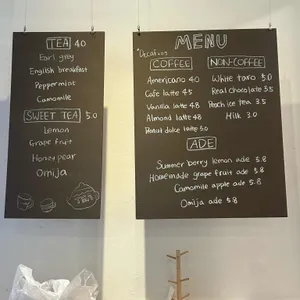 TEA 4.0
Earl grey
English breakfast
Peppermint
Camomile
SWEET TEA 5.0
Lemon
Grape fruit
Honey pear
Omija
TEA
MENU
COFFEE
Americano 4.0
Cafe latte 4.5
Vanilla latte 4.8
Almond latte 4.8
latte 5.0
NON-COFFEE
White taro 5.0
Real chocolate 3.5
Peach ice tea 3.5
Milk 3.0
ADE
Summer berry lemon ade 5.8
Homemade grape fruit ade 5.8
Camomile apple ade 5.8
Omija ade 5.8